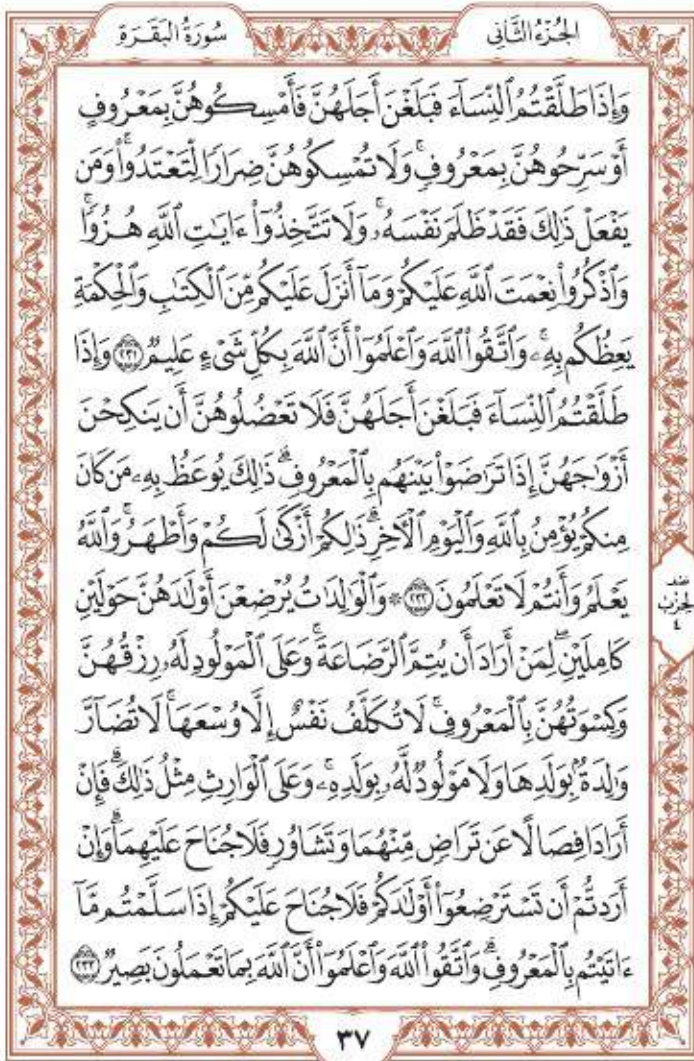 سُورَةُ البَقَرَةِ
الجُزْءُ الثَّانِي
وَإِذَا طَلَّقْتُمُ ٱلنِّسَآءَ فَبَلَغْنَ أَجَلَهُنَّ فَأَمْسِكُوهُنَّ بِمَعْرُوفٍ
أَوْ سَرِّحُوهُنَّ بِمَعْرُوفٍ ۚ وَلَا تُمْسِكُوهُنَّ ضِرَارًا لِّتَعْتَدُوا۟ ۚ وَمَن
يَفْعَلْ ذَٰلِكَ فَقَدْ ظَلَمَ نَفْسَهُۥ ۚ وَلَا تَتَّخِذُوٓا۟ ءَايَٰتِ ٱللَّهِ هُزُوًا ۚ
وَٱذْكُرُوا۟ نِعْمَتَ ٱللَّهِ عَلَيْكُمْ وَمَآ أَنزَلَ عَلَيْكُم مِّنَ ٱلْكِتَٰبِ وَٱلْحِكْمَةِ
يَعِظُكُم بِهِۦ ۚ وَٱتَّقُوا۟ ٱللَّهَ وَٱعْلَمُوٓا۟ أَنَّ ٱللَّهَ بِكُلِّ شَىْءٍ عَلِيمٌ ٢٣١ وَإِذَا
طَلَّقْتُمُ ٱلنِّسَآءَ فَبَلَغْنَ أَجَلَهُنَّ فَلَا تَعْضُلُوهُنَّ أَن يَنكِحْنَ
أَزْوَٰجَهُنَّ إِذَا تَرَٰضَوْا۟ بَيْنَهُم بِٱلْمَعْرُوفِ ۗ ذَٰلِكَ يُوعَظُ بِهِۦ مَن كَانَ
مِنكُمْ يُؤْمِنُ بِٱللَّهِ وَٱلْيَوْمِ ٱلْـَٔاخِرِ ۗ ذَٰلِكُمْ أَزْكَىٰ لَكُمْ وَأَطْهَرُ ۗ وَٱللَّهُ
يَعْلَمُ وَأَنتُمْ لَا تَعْلَمُونَ ٢٣٢ ۞ وَٱلْوَٰلِدَٰتُ يُرْضِعْنَ أَوْلَٰدَهُنَّ حَوْلَيْنِ
كَامِلَيْنِ ۖ لِمَنْ أَرَادَ أَن يُتِمَّ ٱلرَّضَاعَةَ ۚ وَعَلَى ٱلْمَوْلُودِ لَهُۥ رِزْقُهُنَّ
وَكِسْوَتُهُنَّ بِٱلْمَعْرُوفِ ۚ لَا تُكَلَّفُ نَفْسٌ إِلَّا وُسْعَهَا ۚ لَا تُضَآرَّ
وَٰلِدَةٌۢ بِوَلَدِهَا وَلَا مَوْلُودٌ لَّهُۥ بِوَلَدِهِۦ ۚ وَعَلَى ٱلْوَارِثِ مِثْلُ ذَٰلِكَ ۗ فَإِنْ
أَرَادَا فِصَالًا عَن تَرَاضٍ مِّنْهُمَا وَتَشَاوُرٍ فَلَا جُنَاحَ عَلَيْهِمَا ۗ وَإِنْ
أَرَدتُّمْ أَن تَسْتَرْضِعُوٓا۟ أَوْلَٰدَكُمْ فَلَا جُنَاحَ عَلَيْكُمْ إِذَا سَلَّمْتُم مَّآ
ءَاتَيْتُم بِٱلْمَعْرُوفِ ۗ وَٱتَّقُوا۟ ٱللَّهَ وَٱعْلَمُوٓا۟ أَنَّ ٱللَّهَ بِمَا تَعْمَلُونَ بَصِيرٌ ٢٣٣
نصف
الحزب
٤
٣٧